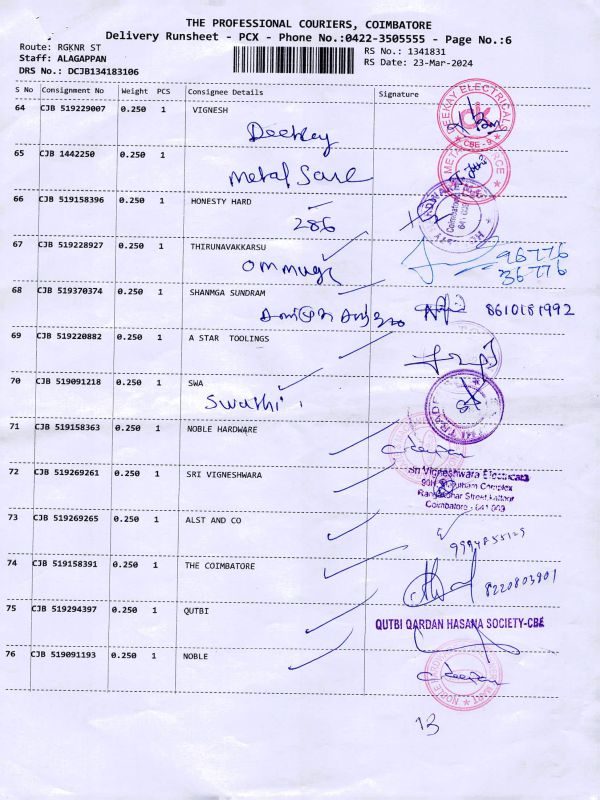 THE PROFESSIONAL COURIERS, COIMBATORE
Delivery Runsheet - PCX - Phone No.:0422-3505555 - Page No.:6
Route: RGKNR ST
Staff: ALAGAPPAN
DRS No.: DCJB134183106
RS No.: 1341831
RS Date: 23-Mar-2024
S No Consignment No Weight PCS Consignee Details Signature
64 CJB 519229007 0.250 1 VIGNESH
Deekay
DEEKAY ELECTRICALS
CBE - 9
65 CJB 1442250 0.250 1
Metal
66 CJB 519158396 0.250 1 HONESTY HARD
286
67 CJB 519228927 0.250 1 THIRUNAVAKKARSU
96776
36776
68 CJB 519370374 0.250 1 SHANMGA SUNDRAM
8610181992
69 CJB 519220882 0.250 1 A STAR TOOLINGS
70 CJB 519091218 0.250 1 SWA
Swathi
71 CJB 519158363 0.250 1 NOBLE HARDWARE
72 CJB 519269261 0.250 1 SRI VIGNESHWARA
Sri Vigneshwara Electricals
Complex
Street,
Coimbatore - 641 009
73 CJB 519269265 0.250 1 ALST AND CO
74 CJB 519158391 0.250 1 THE COIMBATORE
8220803901
75 CJB 519294397 0.250 1 QUTBI
QUTBI QARDAN HASANA SOCIETY-CBE
76 CJB 519091193 0.250 1 NOBLE
13